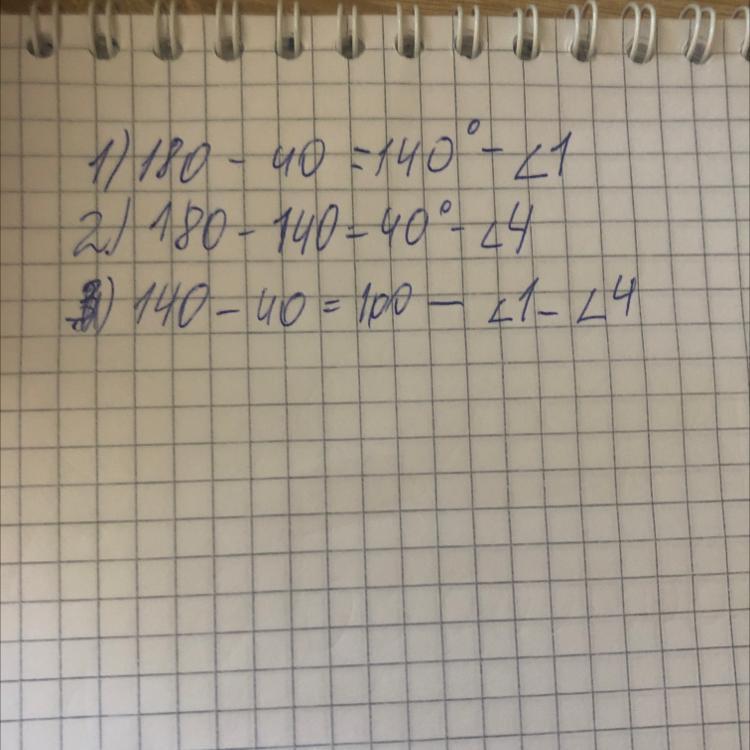 1) 180 - 40 = 140° - ∠1
2) 180 - 140 = 40° - ∠4
3) 140 - 40 = 100 - ∠1 - ∠4